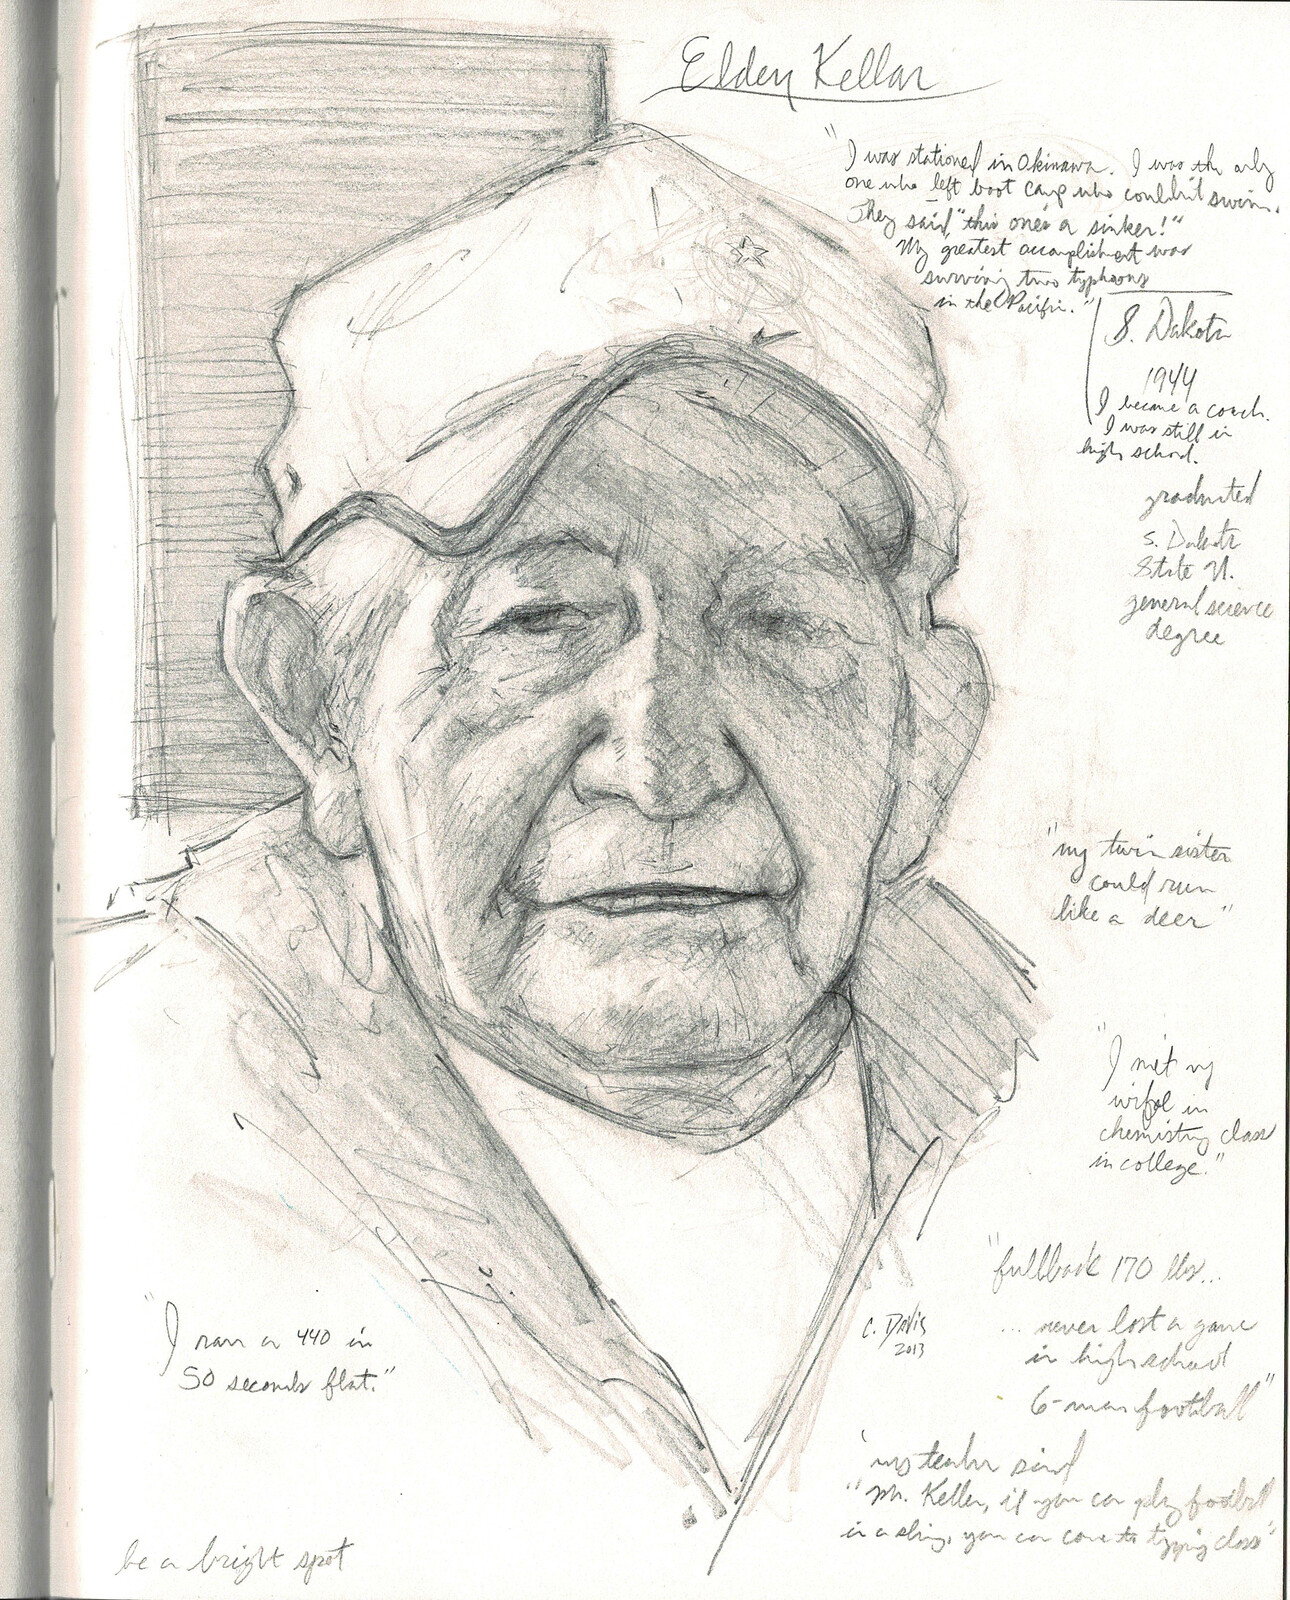 Elden Kellar
"I was stationed in Okinawa. I was the only
one who left boot camp who couldn't swim.
They said "this one's a sinker!"
My greatest accomplishment was
surviving two typhoons
in the Pacific."
S. Dakota
1944
I became a coach.
I was still in
high school.
graduated
S. Dakota
State U.
general science
degree
"my twin sister
could run
like a deer"
"I met my
wife in
chemistry class
in college."
"fullback 170 lbs...
... never lost a game
in high school
6-man football"
"I ran a 440 in
50 seconds flat."
C. Davis
2013
'my teacher said
"Mr. Keller, if you can play football
in a sling, you can come to typing class"
be a bright spot